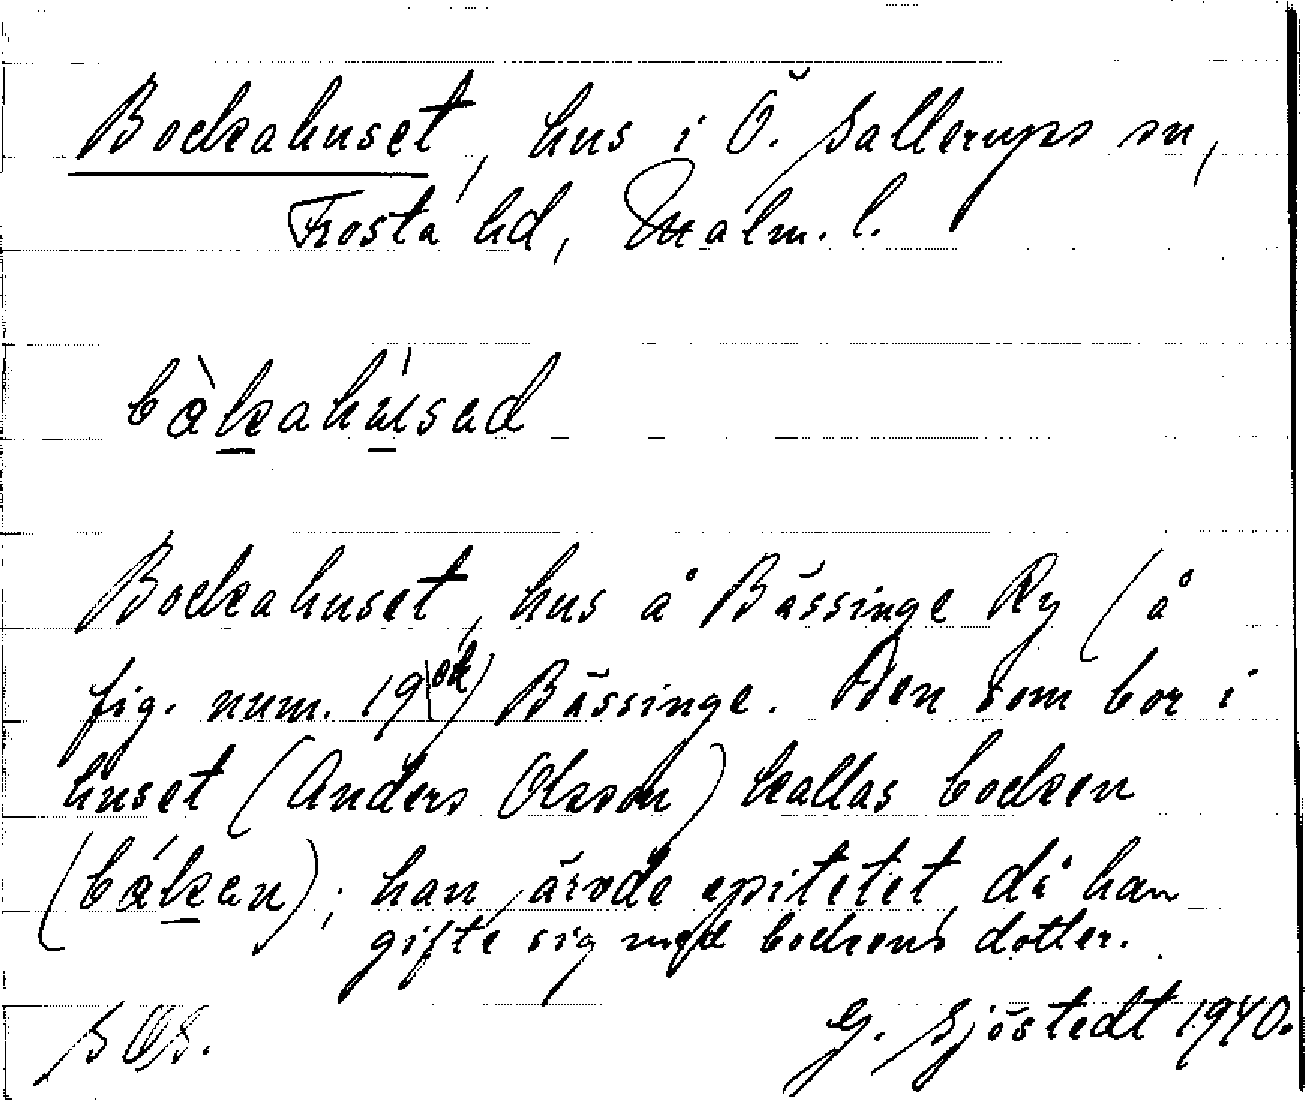 Bockahuset, hus i Ö. Sallerups sn,
Frosta hd, Malm. l.
bàkahúsad
Bockahuset, hus å Bässinge Ry (å
fig. num. 19 ok) Bässinge. Den som bor i
huset (Anders Olsson) kallas bocken
(båkan); han ärvde epitetet, då han
gifte sig med bockens dotter.
SOS.
G. Sjöstedt 1940.